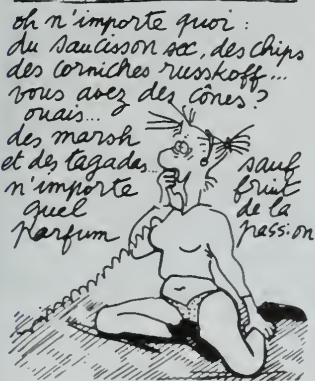 oh n'importe quoi :
du saucisson sec, des chips
des corniches russkoff...
vous avez des cônes ?
ouais...
des marsh
et des tagadas...
n'importe
quel
parfum
sauf
fruit
de la
passion